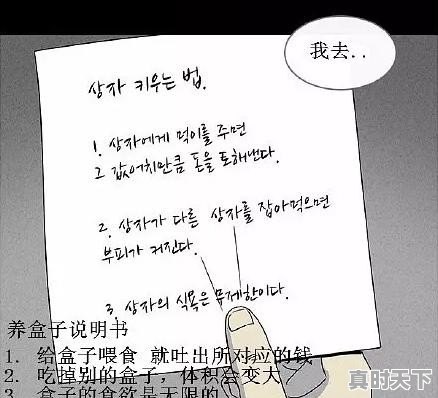 我去..
상자 키우는 법.
1. 상자에게 먹이를 주면
그 값어치만큼 돈을 토해낸다.
2. 상자가 다른 상자를 잡아먹으면
부피가 커진다.
3. 상자의 식욕은 무제한이다.
养盒子说明书
1. 给盒子喂食 就吐出所对应的钱
2. 吃掉别的盒子，体积会变大
3. 盒子的食欲是无限的
真时天下